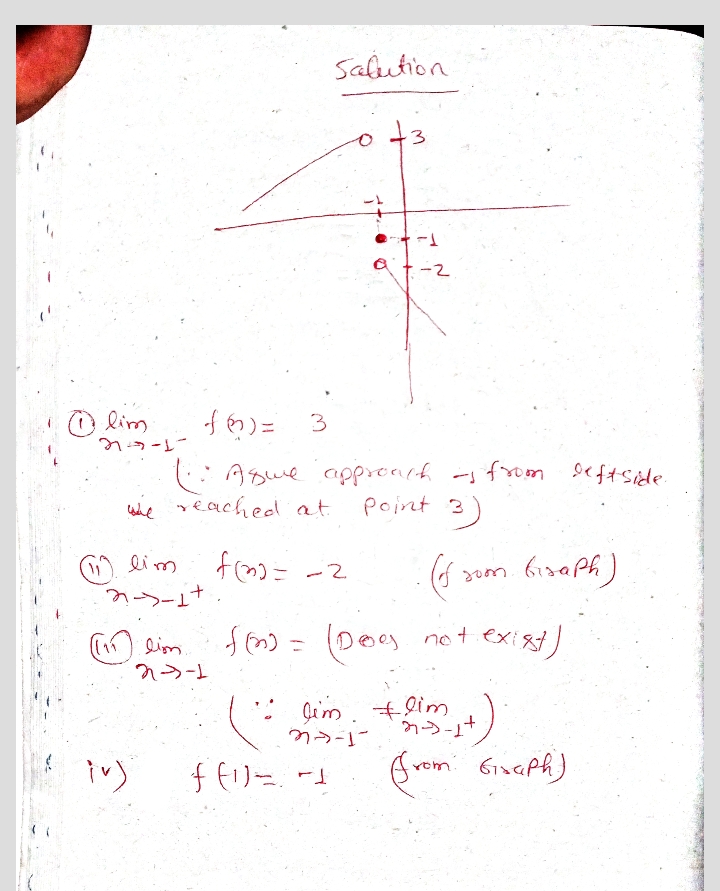 Salution
3
-1
-1
-2
① lim f(n) = 3
n→-1⁻
(∵ As we approach -1 from left side
we reached at point 3)
(ii) lim f(n) = -2 (from Graph)
n→-1⁺
(iii) lim f(n) = (Does not exist)
n→-1
(∵ lim ≠ lim)
n→-1⁻ n→-1⁺
iv) f(-1) = -1 (from Graph)